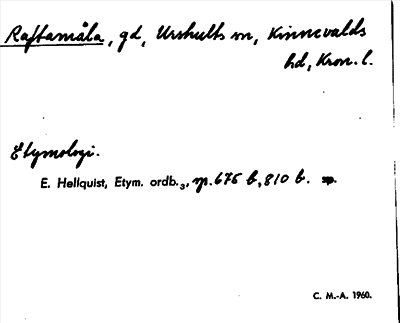 Raftamåla, gd, Urshults sn, Kinnevalds
hd, Kron. l.
Etymologi.
E. Hellquist, Etym. ordb.3, sp. 675 b, 810 b.
C. M.-A. 1960.